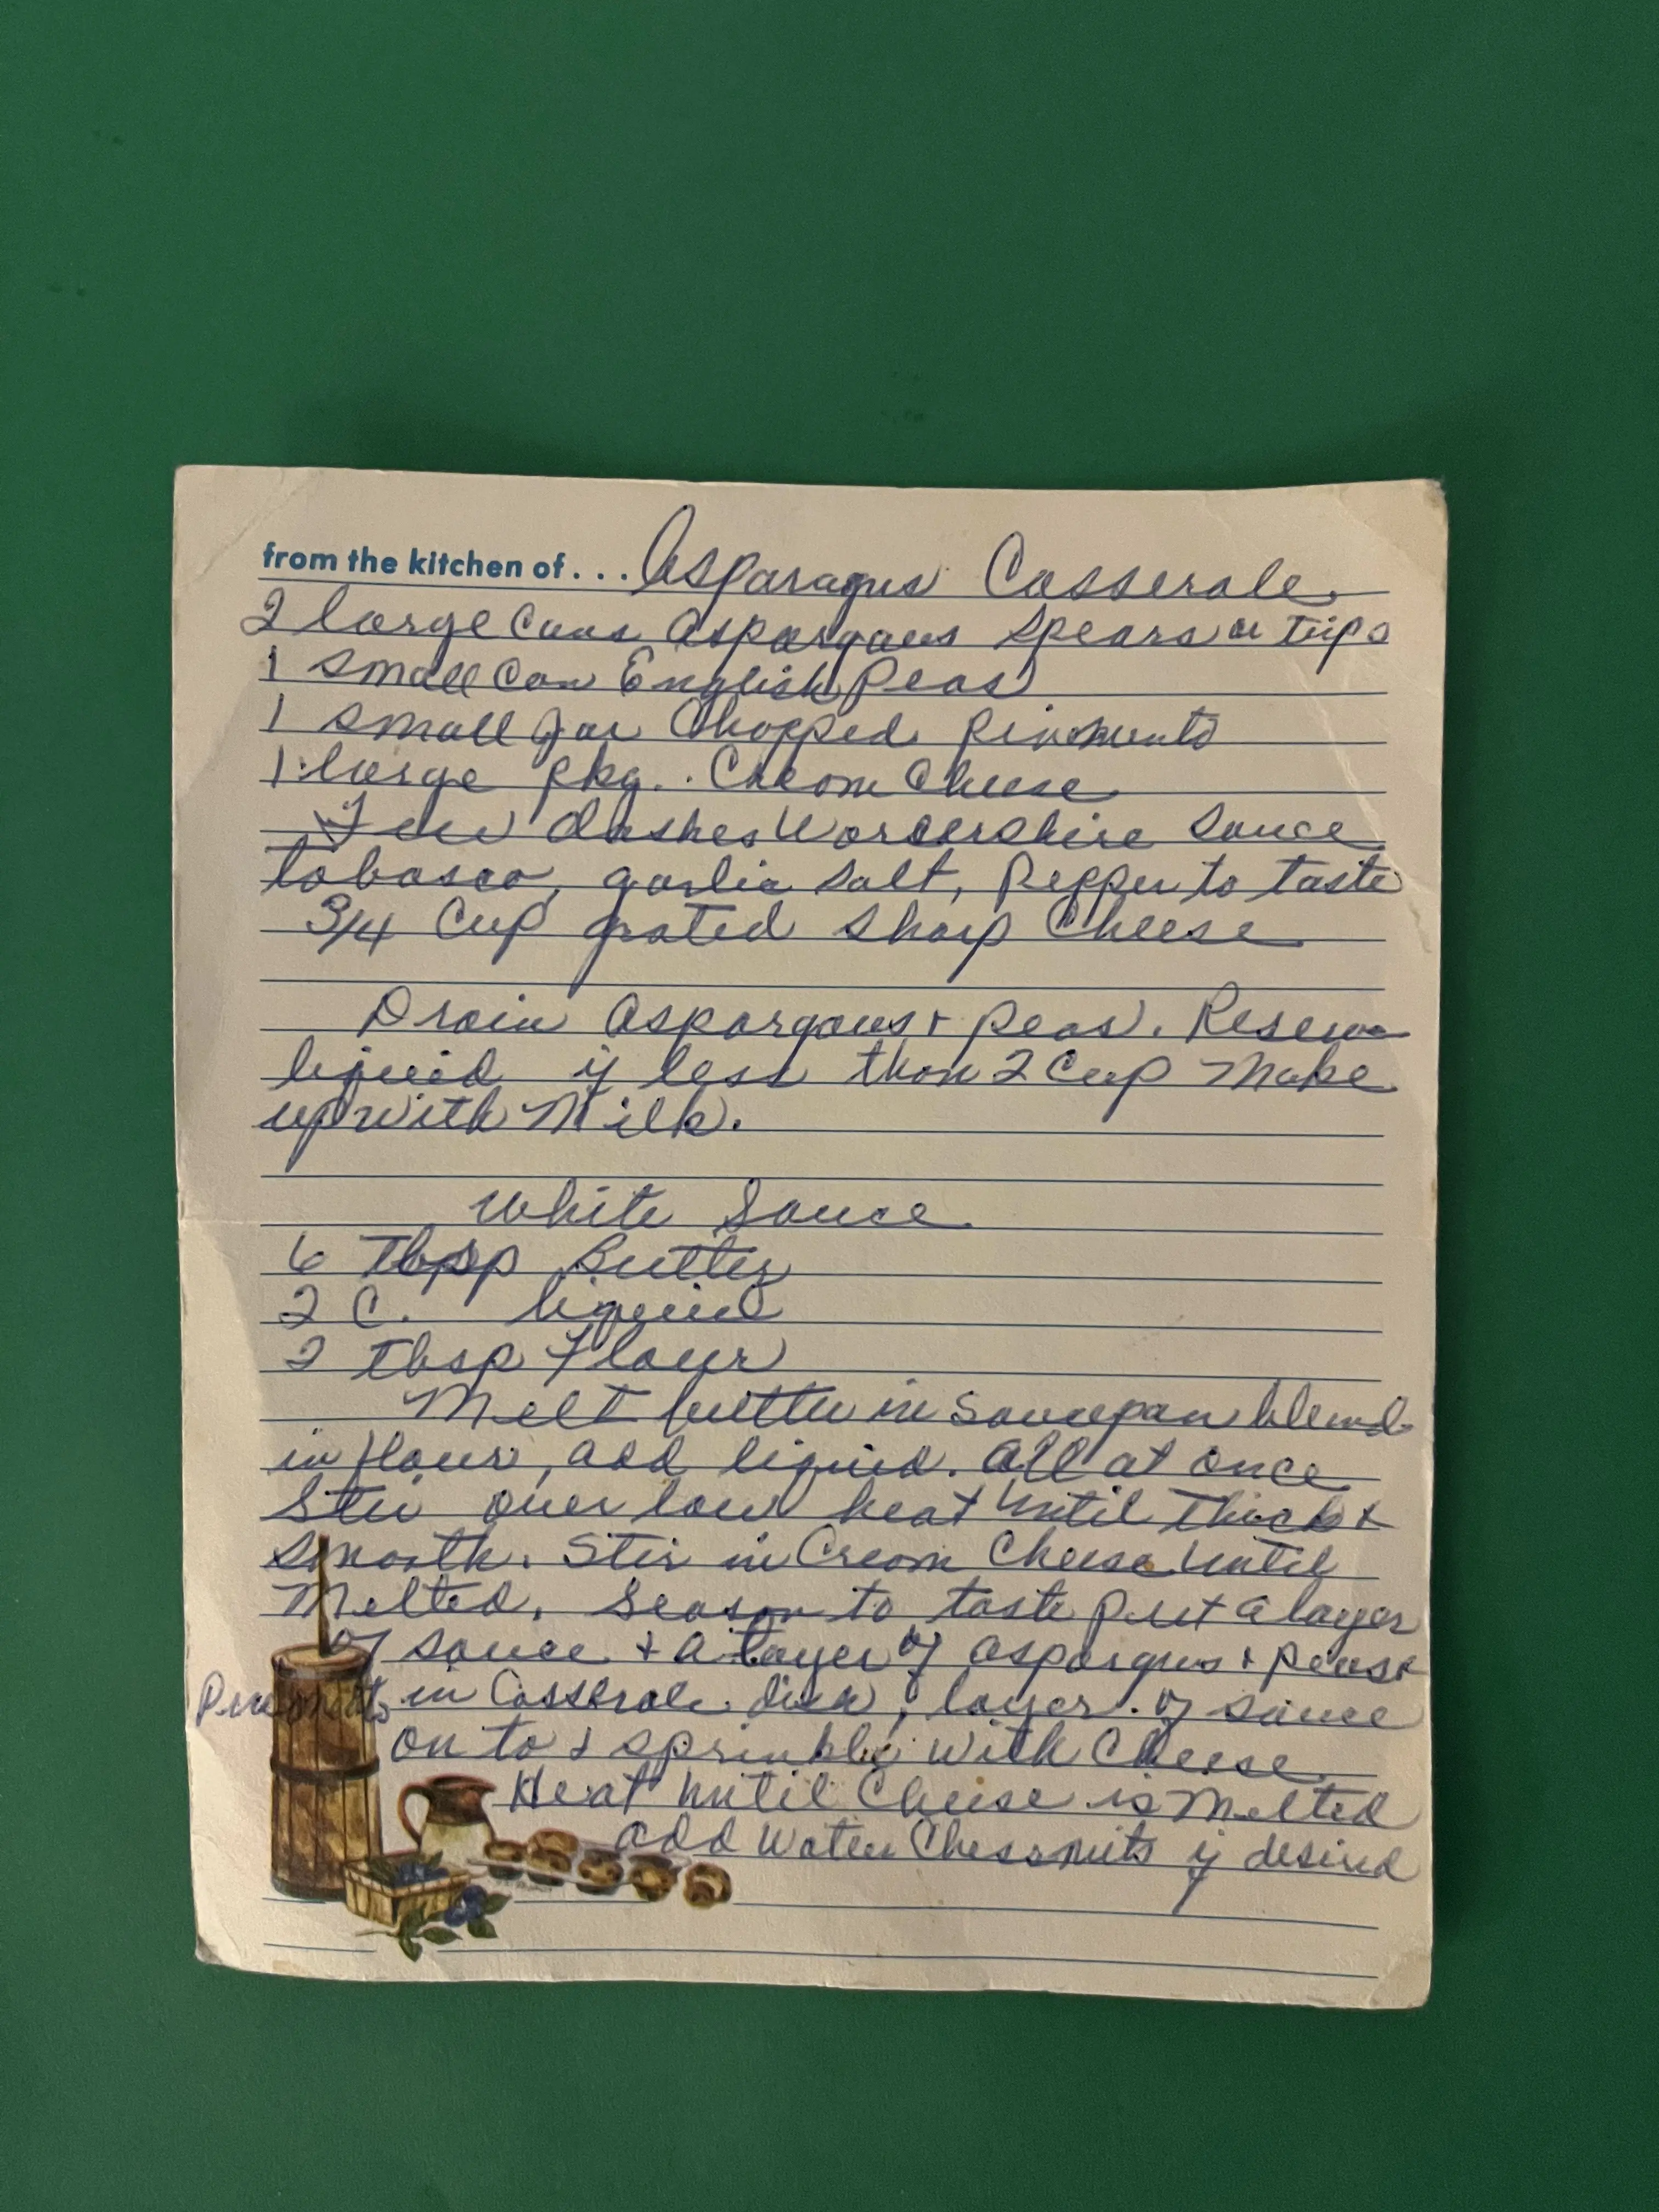 from the kitchen of... Asparagus Casserole
2 large cans Aspargaus Spears or tips
1 small can English Peas
1 small Jar Chopped Pimento
1 large pkg. Cream Cheese
Few dashes Worcershire Sauce
tobasco, garlic salt, Pepper to taste
3/4 Cup grated sharp Cheese
Drain Aspargaus + peas. Reserve
liquid if less than 2 Cup Make
up with Milk.
White Sauce
6 Tbsp Butter
2 C. liquid
2 Tbsp Flour
Melt butter in Saucepan blend
in flour, add liquid. All at once
Stir over low heat Until Thick +
smooth. Stir in Cream Cheese Until
Melted. Season to taste Put a layer
of sauce + a layer of aspargus + peas +
in Casserole dish, layer of sauce
on to + sprinkle with Cheese
Heat Until Cheese is Melted
add Water Chessnuts if desired